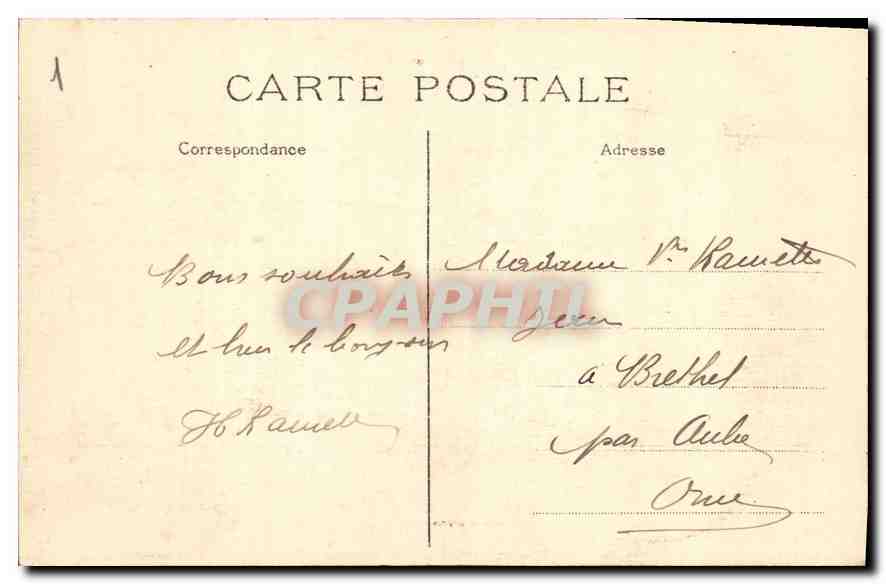 1
CARTE POSTALE
Correspondance
Adresse
Bons souhaits
et bien le bonjour
H Ramette
Madame Vve Ramette
Jean
à Brethel
par Aube
Orne
CPAPHIL